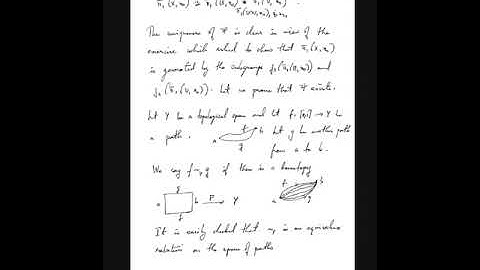 π₁(X,x₀) ≅ π₁(U,x₀) * π₁(V,x₀)
π₁(U∩V,x₀)
The uniqueness of Ψ is clear in view of the
exercise which asked to show that π₁(X,x₀)
is generated by the subgroups j₁(π₁(U,x₀)) and
j₂(π₁(V,x₀)). Let us prove that Ψ exists.
Let Y be a topological space and let f: [0,1] → Y be
a path. Let g be another path
a f b g
from a to b.
We say f ~ₚ g if there is a homotopy
a g b f F → Y a f b g
It is easily checked that ~ₚ is an equivalence
relation on the space of paths